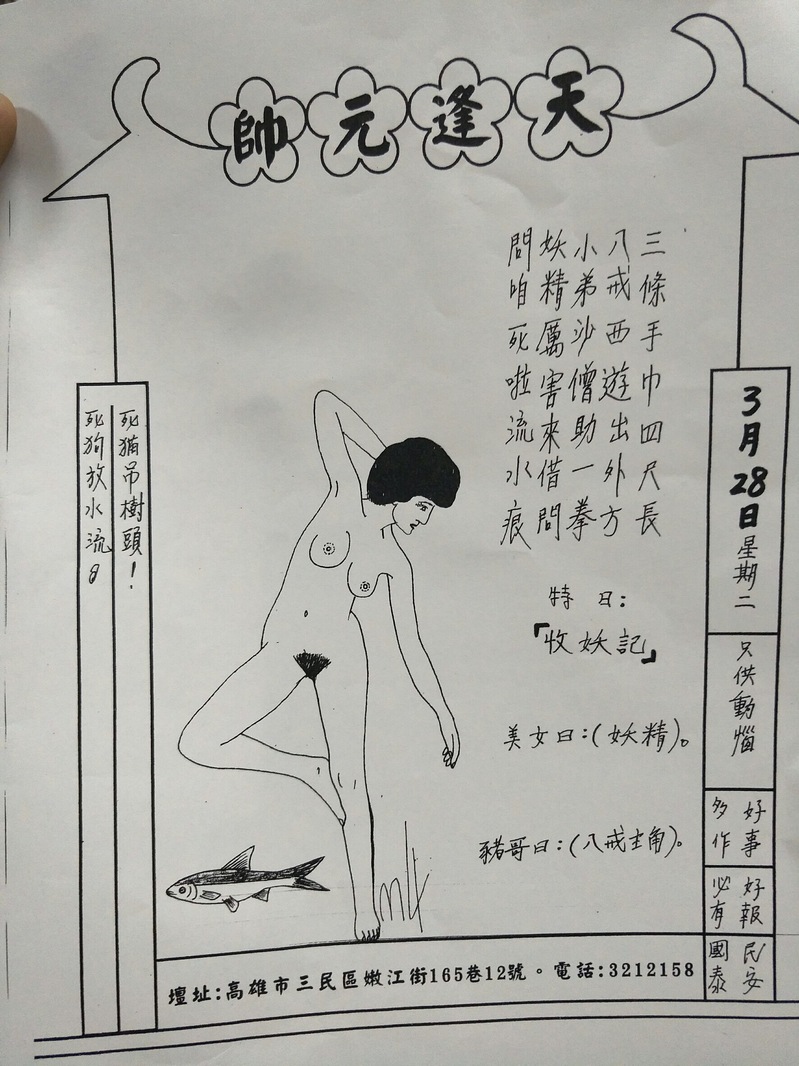 天逢元帥
三條手巾四尺長
八戒西遊出外方
小弟沙僧助一拳
妖精厲害來借問
問咱死啦流水痕
特日:
「收妖記」
美女曰:(妖精)。
豬哥曰:(八戒主角)。
3月28日星期二
只供動惱
好事
多作
好報
必有
民安
國泰
死猫吊樹頭!
死狗放水流。
壇址:高雄市三民區嫩江街165巷12號。電話:3212158